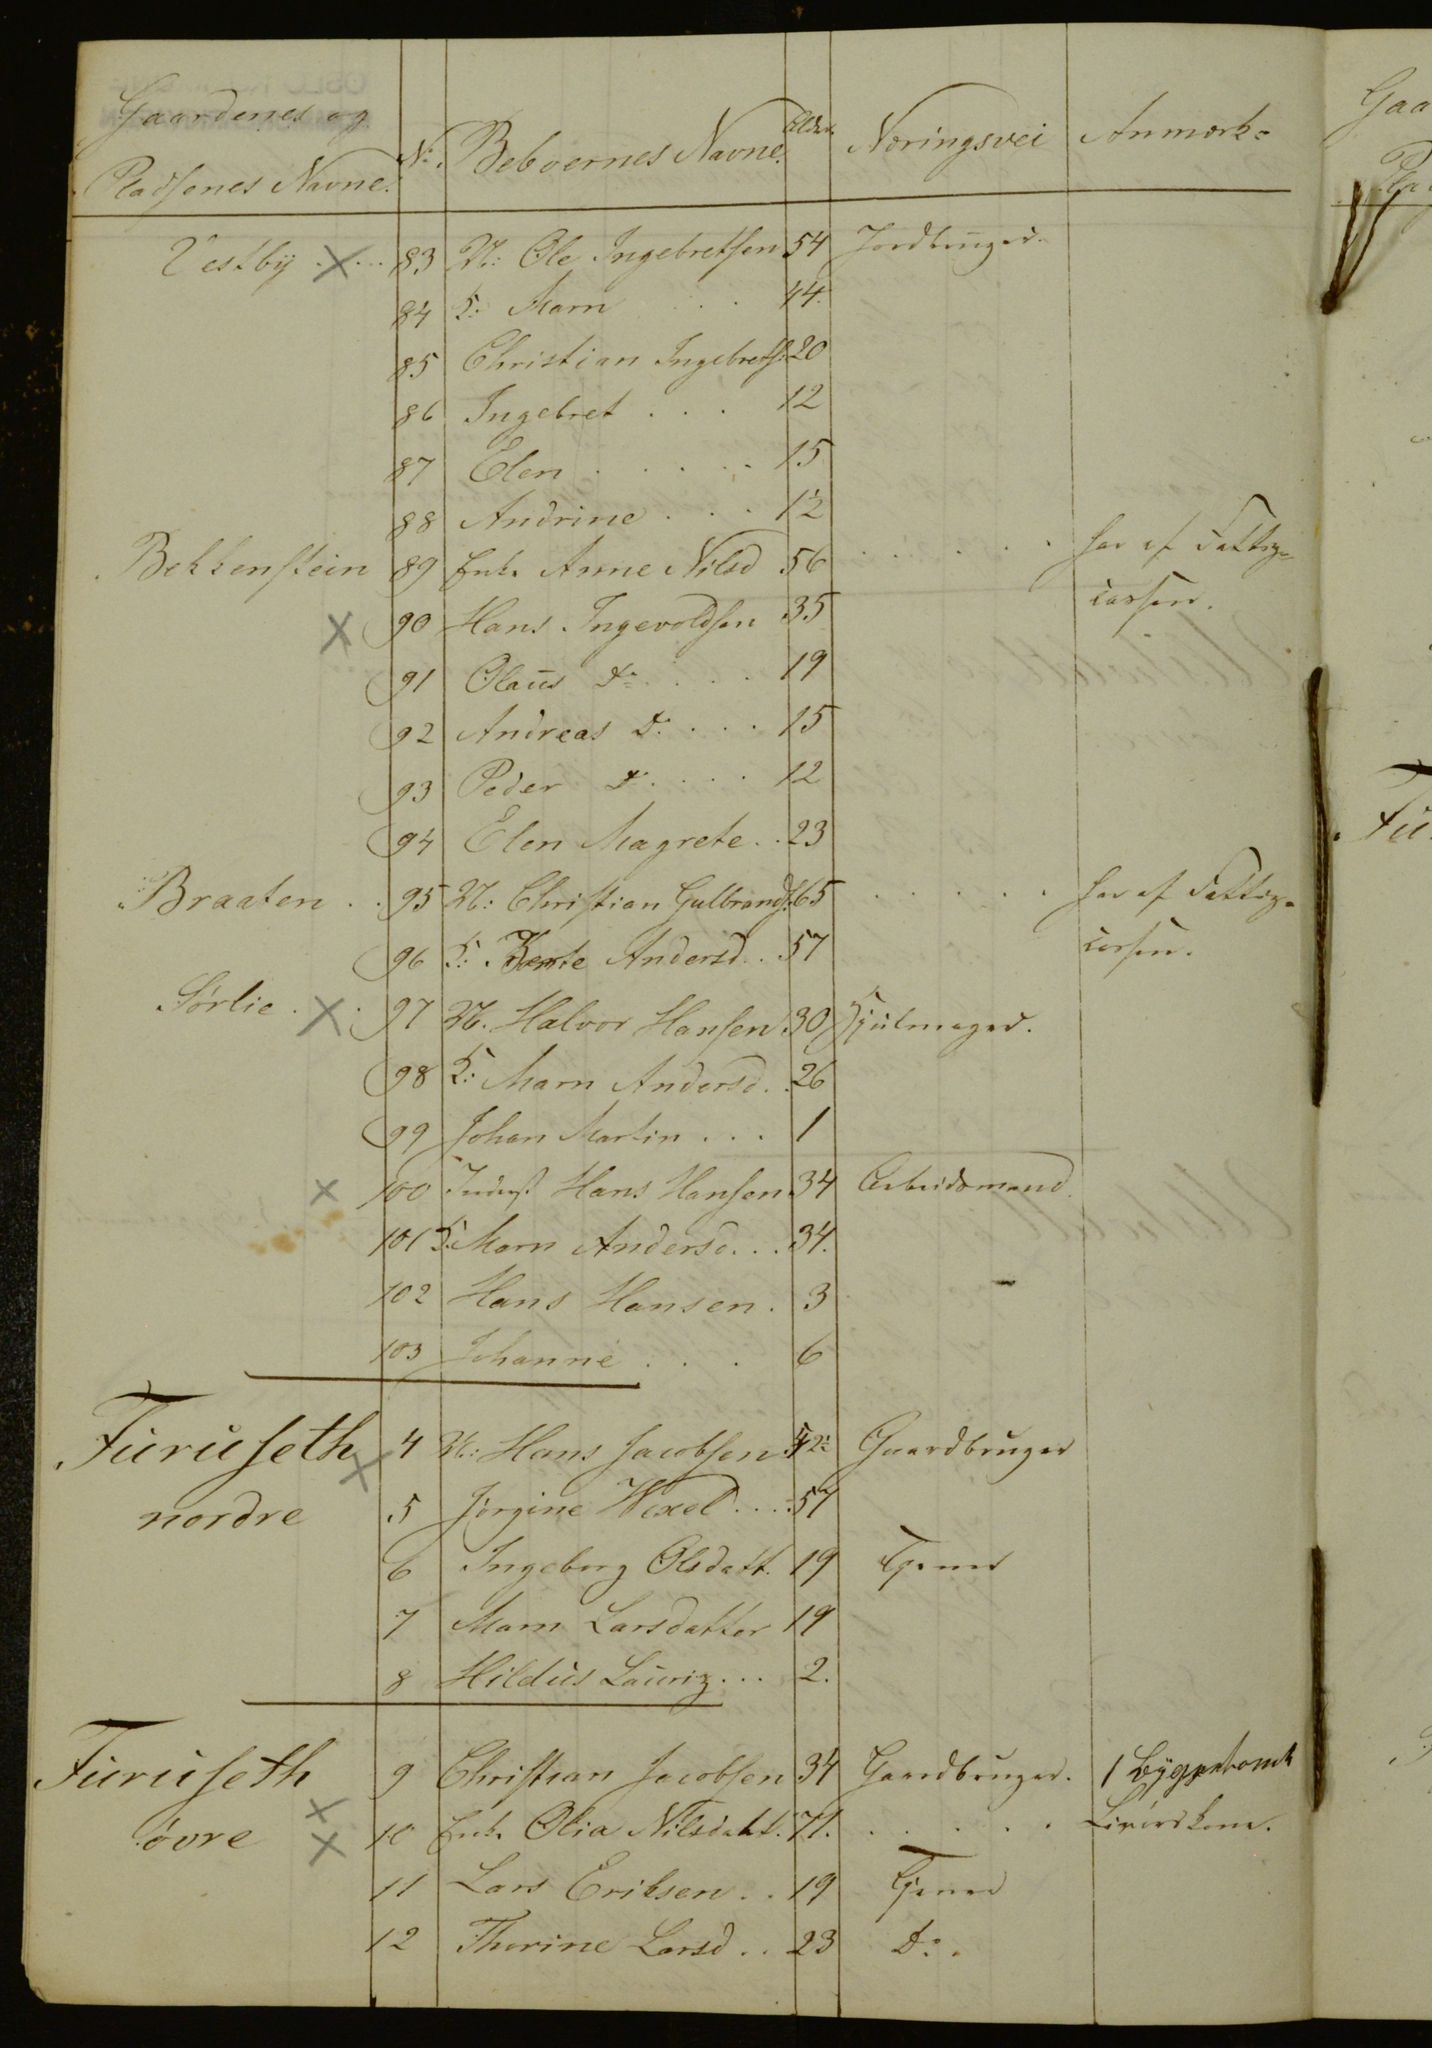 Gaardenes og
Pladsenes Navne. No. Beboernes Navne. Alder. Næringsvei Anmærk=
Vestby . . . 83 M: Ole Ingebretsen 54 Jordbruger.
84 K: Marn . . 44.
85 Christian Ingebrets: 20
86 Ingebret . . . 12
87 Elen . . . . . 15
88 Andrine . . . 12
Bekkenstein 89 Enk. Anne Nilsd 56 . . . . . har af Fattig=
cassen.
90 Hans Ingevoldsen 35
91 Olaus Do . . . . 19
92 Andreas Do . . . 15
93 Peder Do . . . . 12
94 Elen Magrete . . 23
Braaten . . 95 M: Christian Gulbrands: 65 . . . . . har af Fattig=
cassen.
96 K: Andersd . . 57
Sørlie . . 97 M. Halvor Hansen 30 Hjulmager.
98 K: Marn Andersd . . 26
99 Johan Martin . . . 1
100 Inderst Hans Hansen 34 Arbeidsmand.
101 K. Marn Andersd . . . 34.
102 Hans Hansen . 3
103 Johanne . . . 6
Furuseth 4 M: Hans Jacobsen 42 Gaardbruger
nordre 5 Jørgine Wexel . . . . 57
6 Ingeborg Olsdatt. 19 Tjener
7 Marn Larsdatter 19
8 Hildus Lauriz . . . 2.
Furuseth 9 Christian Jacobsen 34 Gaardbruger. 1 Byggetomt
øvre 10 Enk. Olia Nilsdatt. 71. . . . . . Livørdkone.
11 Lars Eriksen . . 19 Tjener
12 Thorine Larsd . . 23 Do.